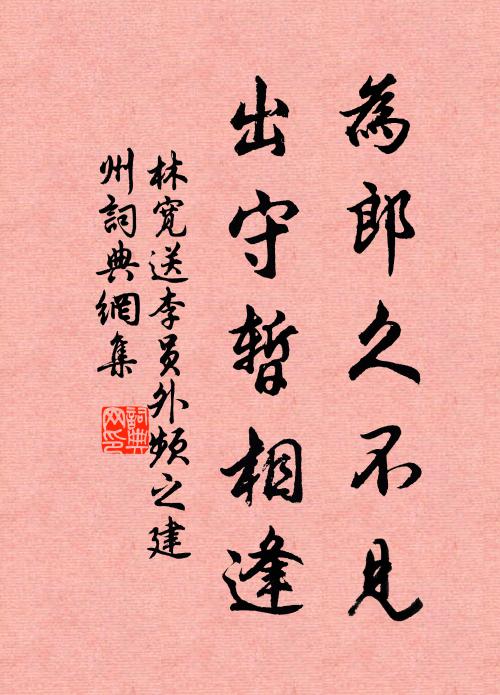 為郎久不見
出守暫相逢
林寬送李員外頻之建
州詞典網集
詞典
网印